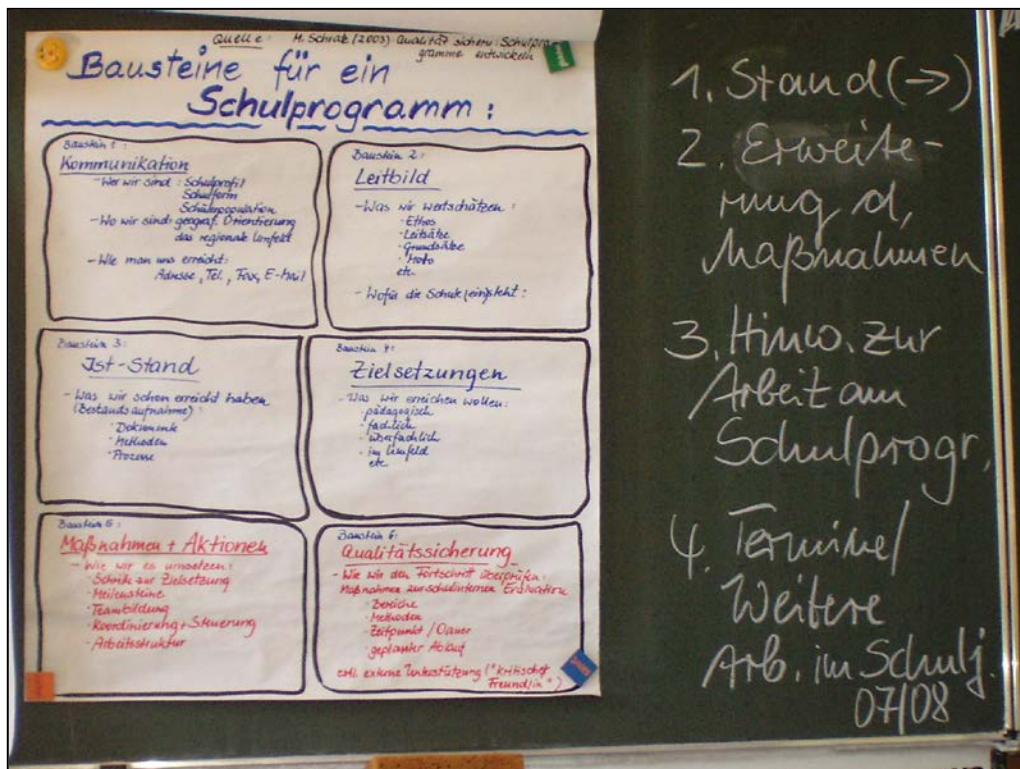 Quelle: M. Schratz (2003) Qualität sichern: Schulpro-
gramme entwickeln
Bausteine für ein
Schulprogramm:
Baustein 1:
Kommunikation
- Wer wir sind: Schulprofil
Schulform
Schülerpopulation
- Wo wir sind: geograf. Orientierung
das regionale Umfeld
- Wie man uns erreicht:
Adresse, Tel., Fax, E-Mail
Baustein 2:
Leitbild
- Was wir wertschätzen:
· Ethos
· Leitsätze
· Grundsätze
· Motto
etc.
- Wofür die Schule (ein)steht:
Baustein 3:
Ist-Stand
- Was wir schon erreicht haben
(Bestandsaufnahme):
· Dokumente
· Methoden
· Prozesse
Baustein 4:
Zielsetzungen
- Was wir erreichen wollen:
· pädagogisch
· fachlich
· überfachlich
· im Umfeld
etc.
Baustein 5:
Maßnahmen + Aktionen
- Wie wir es umsetzen:
· Schritte zur Zielsetzung
· Meilensteine
· Teambildung
· Koordinierung + Steuerung
· Arbeitsstruktur
Baustein 6:
Qualitätssicherung
- Wie wir den Fortschritt überprüfen:
Maßnahmen zur schulinternen Evaluation
· Bereiche
· Methoden
· Zeitpunkt / Dauer
· geplanter Ablauf
evtl. externe Unterstützung ("kritischer
Freund/in")
1. Stand (→)
2. Erweite-
rung d.
Maßnahmen
3. Hinw. zur
Arbeit am
Schulprogr.
4. Termine/
Weitere
Arb. im Schulj.
07/08